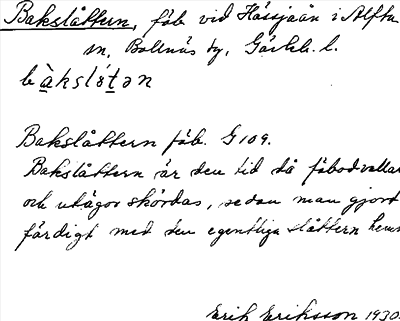 Bakslåttern, fäb. vid Hässjaån i Alfta
sn, Bollnäs tg, Gävleb. l.
bàkslɔtən
Bakslåttern fäb. G 109.
Bakslåttern är den tid då fäbodvallar
och utägor skördas, sedan man gjort
färdigt med den egentliga slåttern hemm
Erik Eriksson 1930.